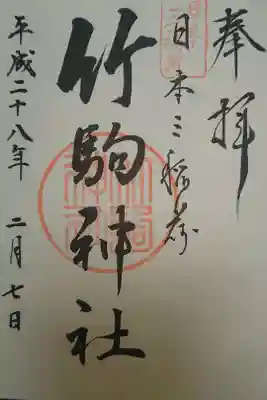 奉拝
日本三稲荷
竹駒神社
平成二十八年 二月七日